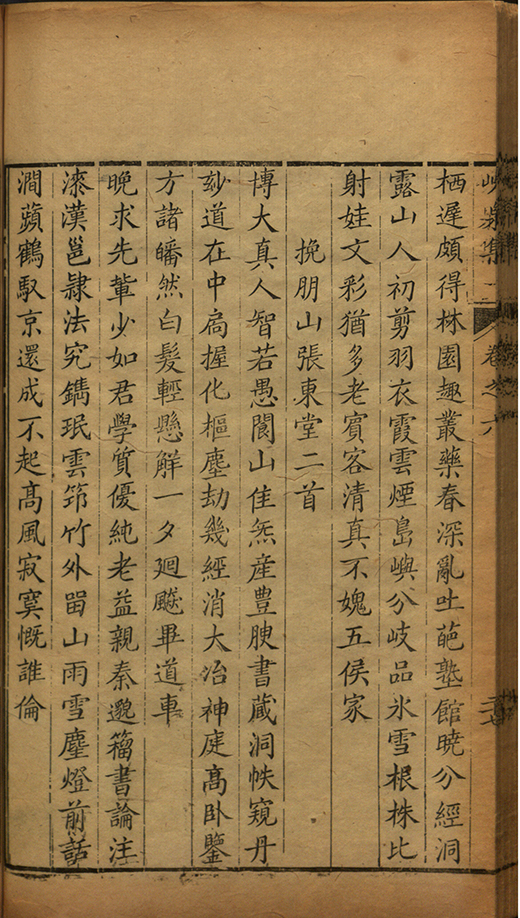 栖遲頗得林園趣叢藥春深亂吐葩塾館曉分經洞
露山人初剪羽衣霞雲煙島嶼分岐品氷雪根株比
射娃文彩猶多老賓客清真不媿五侯家
挽朋山張東堂二首
博大真人智若愚閬山佳炁産豊腴書蔵洞帙窺丹
玅道在中扃握化樞塵劫幾經消大冶神庭髙卧鑒
方諸皤然白髮輕懸解一夕廻飈畢道車
晚求先軰少如君學質優純老益親秦邈籀書論注
漆漢邕隷法究鐫珉雲笻竹外畱山雨雪塵燈前話
澗蘋鶴馭京還成不起髙風寂寞慨誰倫